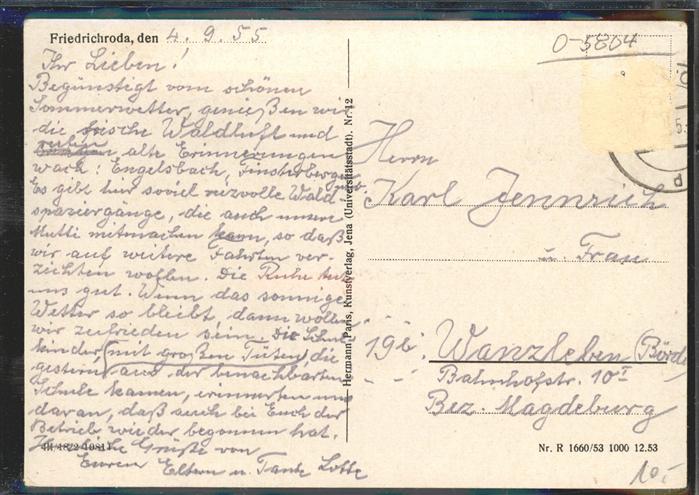 Friedrichroda, den 4.9.55
Ihr Lieben!
Begünstigt vom schönen
Sommerwetter, genießen wir
die frische Waldluft und
rufen alte Erinnerungen
wach: Engelsbach, Finsterbergen
Es gibt hier soviel reizvolle Wald-
spaziergänge, die auch unsere
Mutti mitmachen kann, so daß
wir auf weitere Fahrten ver-
zichten wollen. Die Ruhe tut
uns gut. Wenn das sonnige
Wetter so bleibt, dann wollen
wir zufrieden sein. Die Schul-
kinder (mit großen Tüten) die
gestern aus der benachbarten
Schule kamen, erinnerten uns
daran, daß auch bei Euch der
Betrieb wieder begonnen hat.
Herzliche Grüße von
Euren Eltern u. Tante Lotte
Hermann Paris, Kunstverlag, Jena (Universitätsstadt). Nr. 12
0-5804
Herrn
Karl Jennrich
u. Frau
19b Wanzleben (Börde
Bahnhofstr. 10 I
Bez. Magdeburg
Nr. R 1660/53 1000 12.53
10,-